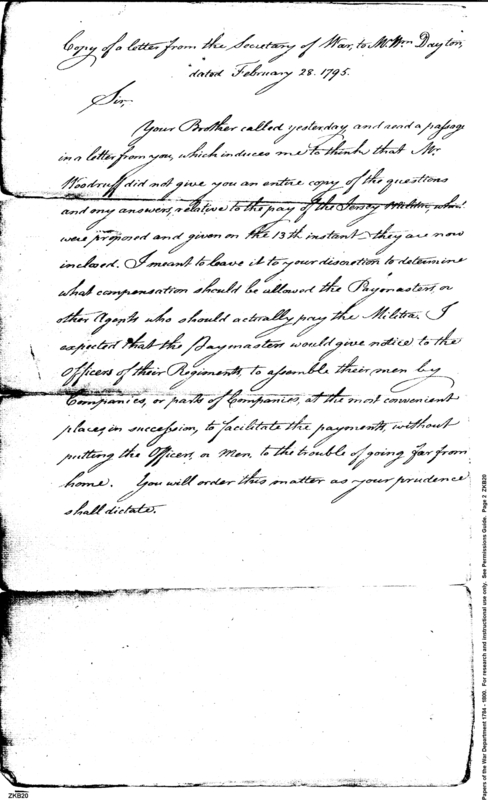 Copy of a letter from the Secretary of War, to Mr. Wm Dayton,
dated February 28. 1795.
Sir,
Your Brother called yesterday, and read a passage
in a letter from you, which induces me to think that Mr.
Woodruff did not give you an entire copy of the questions
and my answers, relative to the pay of the Jersey Militia, which
were proposed and given on the 13th instant - they are now
inclosed. I meant to leave it to your discretion to determine
what compensation should be allowed the Paymasters or
other Agents who should actually pay the Militia. I
expected that the Paymasters would give notice to the
Officers of their Regiments, to assemble their men by
Companies, or parts of Companies, at the most convenient
places, in succession, to facilitate the payments, without
putting the Officers, or Men, to the trouble of going far from
home. You will order this matter as your prudence
shall dictate.
ZKB20
Papers of the War Department 1784 - 1800. For research and instructional use only. See Permissions Guide. Page 2 ZKB20